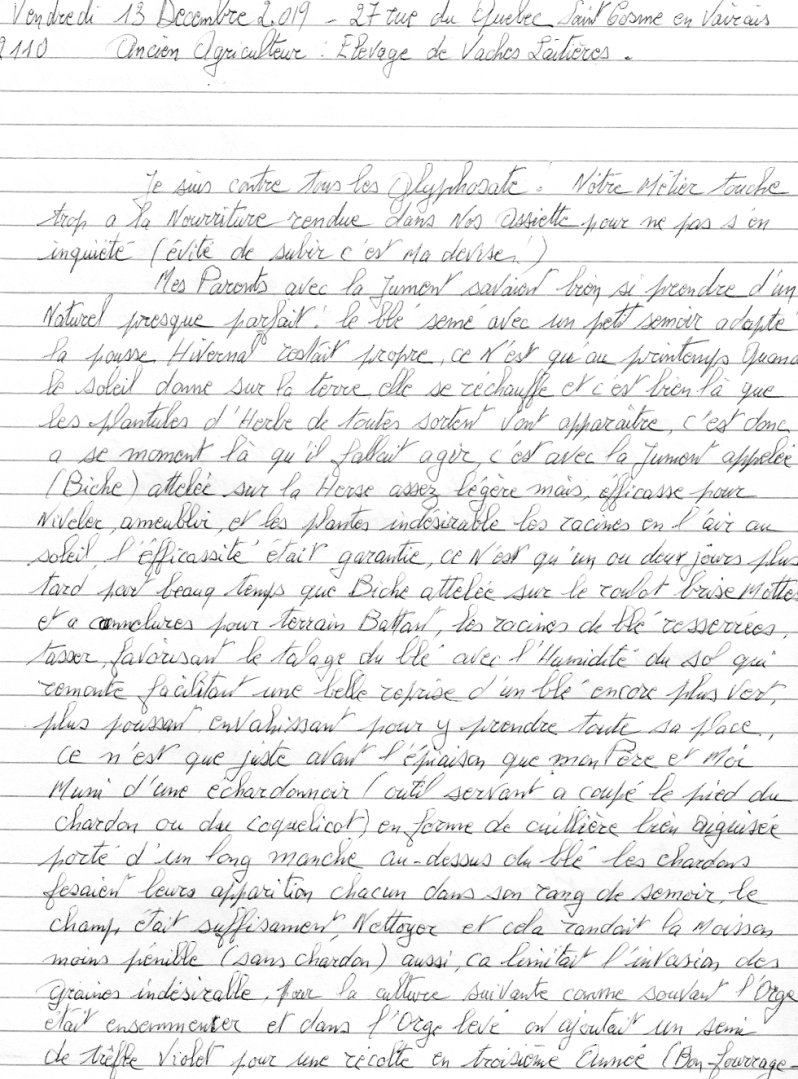 Vendredi 13 Decembre 2019 - 27 rue du Quebec Saint Cosme en Vairais
2110 Ancien Agriculteur : Elevage de Vaches Laitières.
Je suis contre tous les Glyphosate. Nôtre Métier touche
trop a la Nourriture rendue dans Nos Assiette pour ne pas s'en
inquiété (évité de subir c'est Ma devise!)
Mes Parents avec la Jument savaient bien si prendre d'un
Naturel presque parfait! le blé semé avec un petit semoir adapté
la pousse Hivernal restait propre, ce N'est qu'au printemps Quand
le soleil donne sur la terre elle se réchauffe et c'est bien là que
les plantules d'Herbe de toutes sortent vont apparaître, c'est donc
a se moment là qu'il fallait agir, c'est avec la Jument appelée
(Biche) attelée sur la Herse assez légère mais, éfficasse pour
Niveler, ameublir, et les plantes indésirable les racines en l'air au
soleil, l'éfficassité était garantie, ce N'est qu'un ou deux jours plus
tard par beau temps que Biche attelée sur le roulot brise Mottes
et a cannelures pour terrain Battant, les racines de blé resserrées,
tasser, favorisant le talage du blé avec l'Humidité du sol qui
remonte facilitant une belle reprise d'un blé encore plus vert,
plus poussant envahissant pour y prendre toute sa place,
ce n'est que juste avant l'épiaison que mon Père et Moi
Muni d'une échardonnoir (outil servant a coupé le pied du
chardon ou du coquelicot) en forme de cuillière bien aiguisée
porté d'un long manche au-dessus du blé les chardons
fesaient leurs apparition chacun dans son rang de semoir, le
champ était suffisament Nettoyer et cela randait la Moisson
moins pénible (sans chardon) aussi, ca limitait l'invasion des
graines indésirable, pour la culture suivante comme souvant l'Orge
était ensemmencer et dans l'Orge levé on ajoutait un semi
de trêfle Violet pour une récolte en troisième Année (Bon-fourrage-